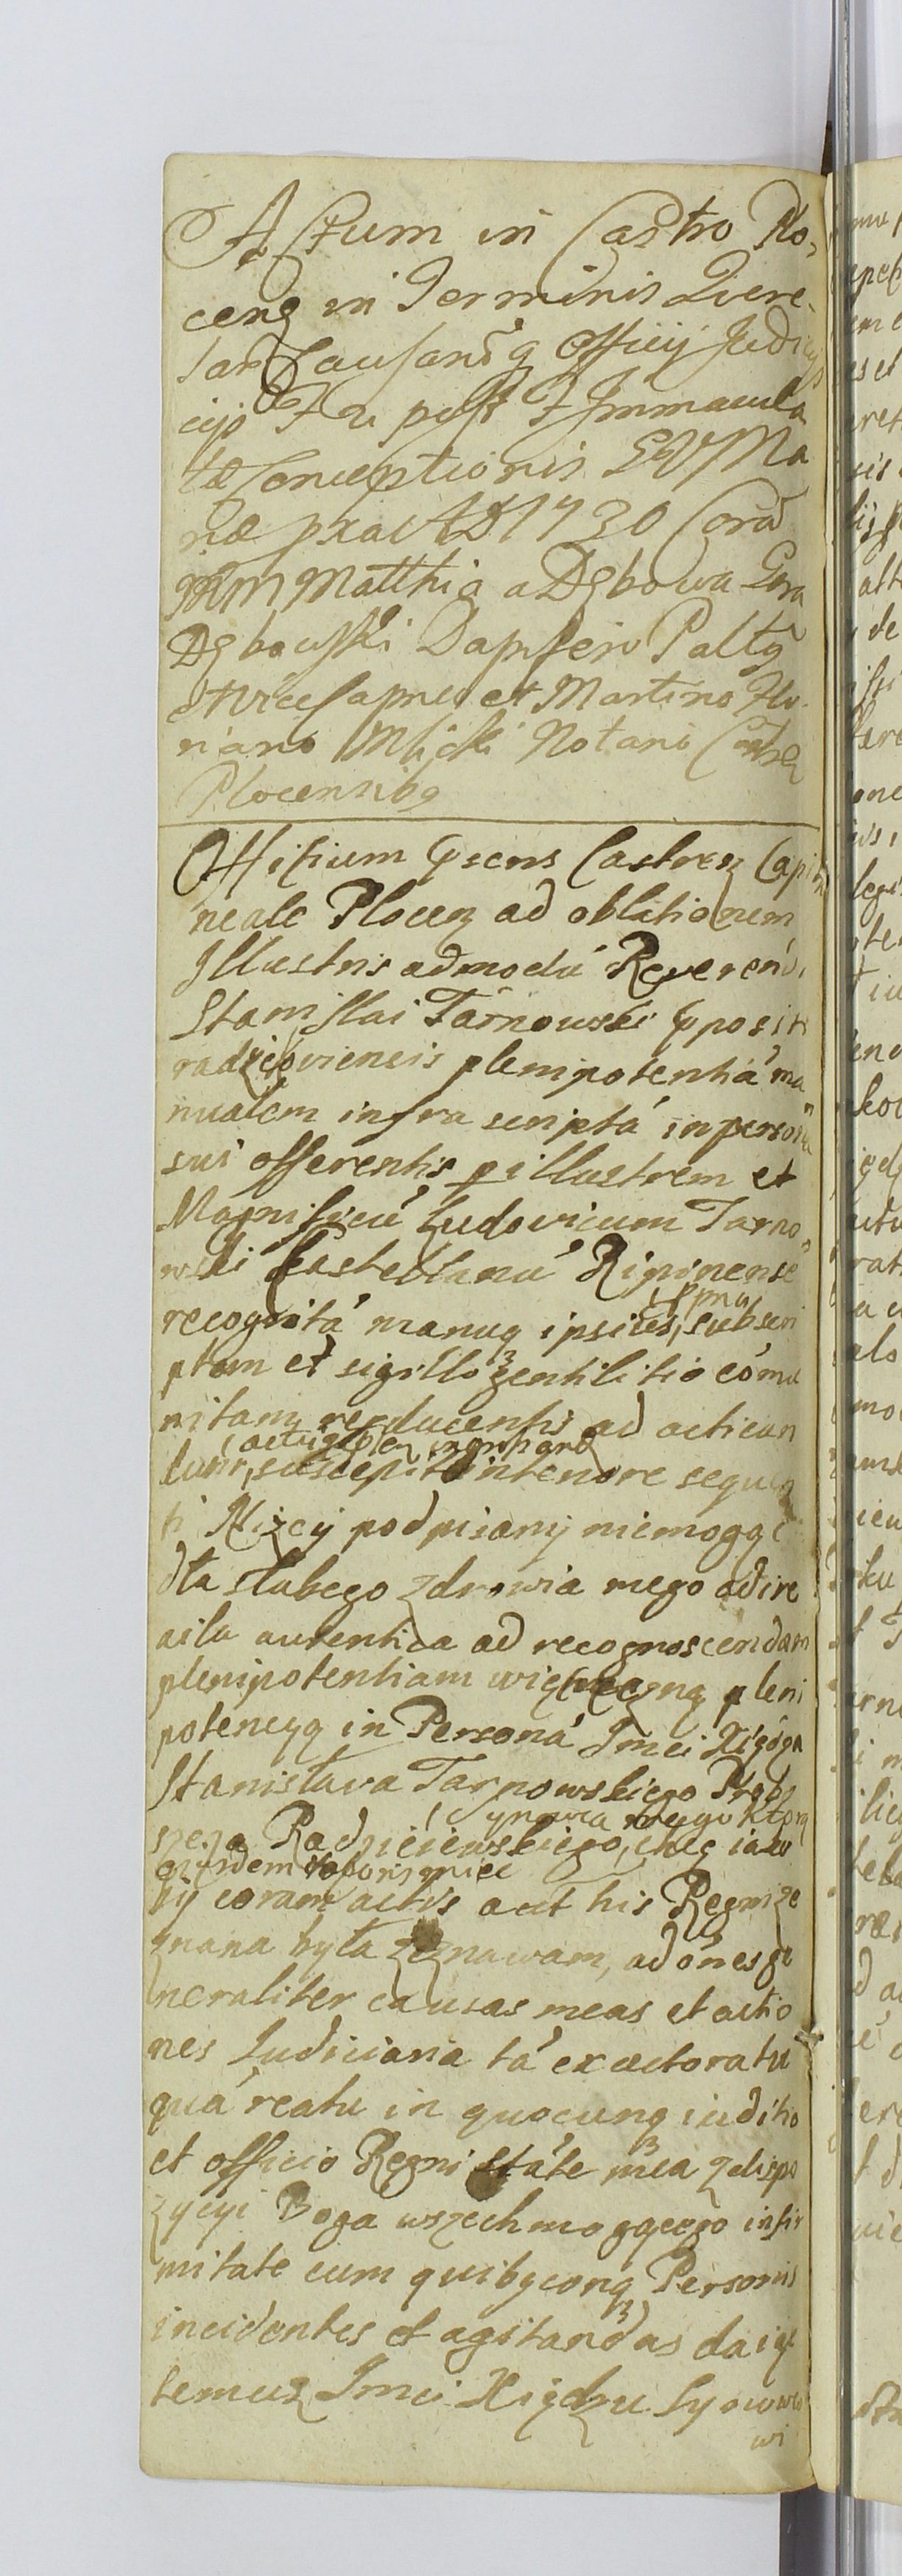 Actum in Castro Plo,
cenȝ in Terminis Quere
lar Causarūq Officij Judic
cijs F 2i post F Immacula
tæ Conceptionis BVMa
riæ pxa AD 1730 Corā
Matthia a Dębowa Gora
Dębowski Dapifero Pultȝ
et Vicecapneo et Martino Flo
riano Mlicki Notario Castreȝ
Plocensibȝ
Officium Ppsens Castrenȝ Capita
neale Plocenȝ ad oblationem
Illustris admodū Reverendi
Stanislai Tarnowski Ppositi
radzieioviensis plenipotentiā ma
nualem infra scriptā in persona
sui offerentis p illustrem et
Magnificū Ludovicum Tarno,
wski Castellanū Ripinensē
recognitā manuq ipsius, subscri
ptam et sigillo gentilitio cōmu
nitam reproducentis ad actican
dum, suscepit in tenore sequen
ti Niżey podpisany niemogąc
dla słabego zdrowia mego adire
acta autentica ad recognoscendam
plenipotentiam więc ręczną pleni
potencyą in Personā Jmci Xiędza
Stanisława Tarnowskiego Prob
szcza Radzieiewskiego, synowca mego ktora
eiusdem vaporis mieć chcę iako
by coram actis aut his Regni ze
znana była zeznawam, ad ōnes ge
neraliter causas meas et actio
nes Judiciaria tā ex actoratu
quā reatu in quocunq iuditio
et officio Regni stāte mea z dispo
zycyi Boga wszechmogącego infir
mitate cum quibȝcunq Personis
incidentes et agitandas daię
temuż Jmci Xiędzu Synowco
wi